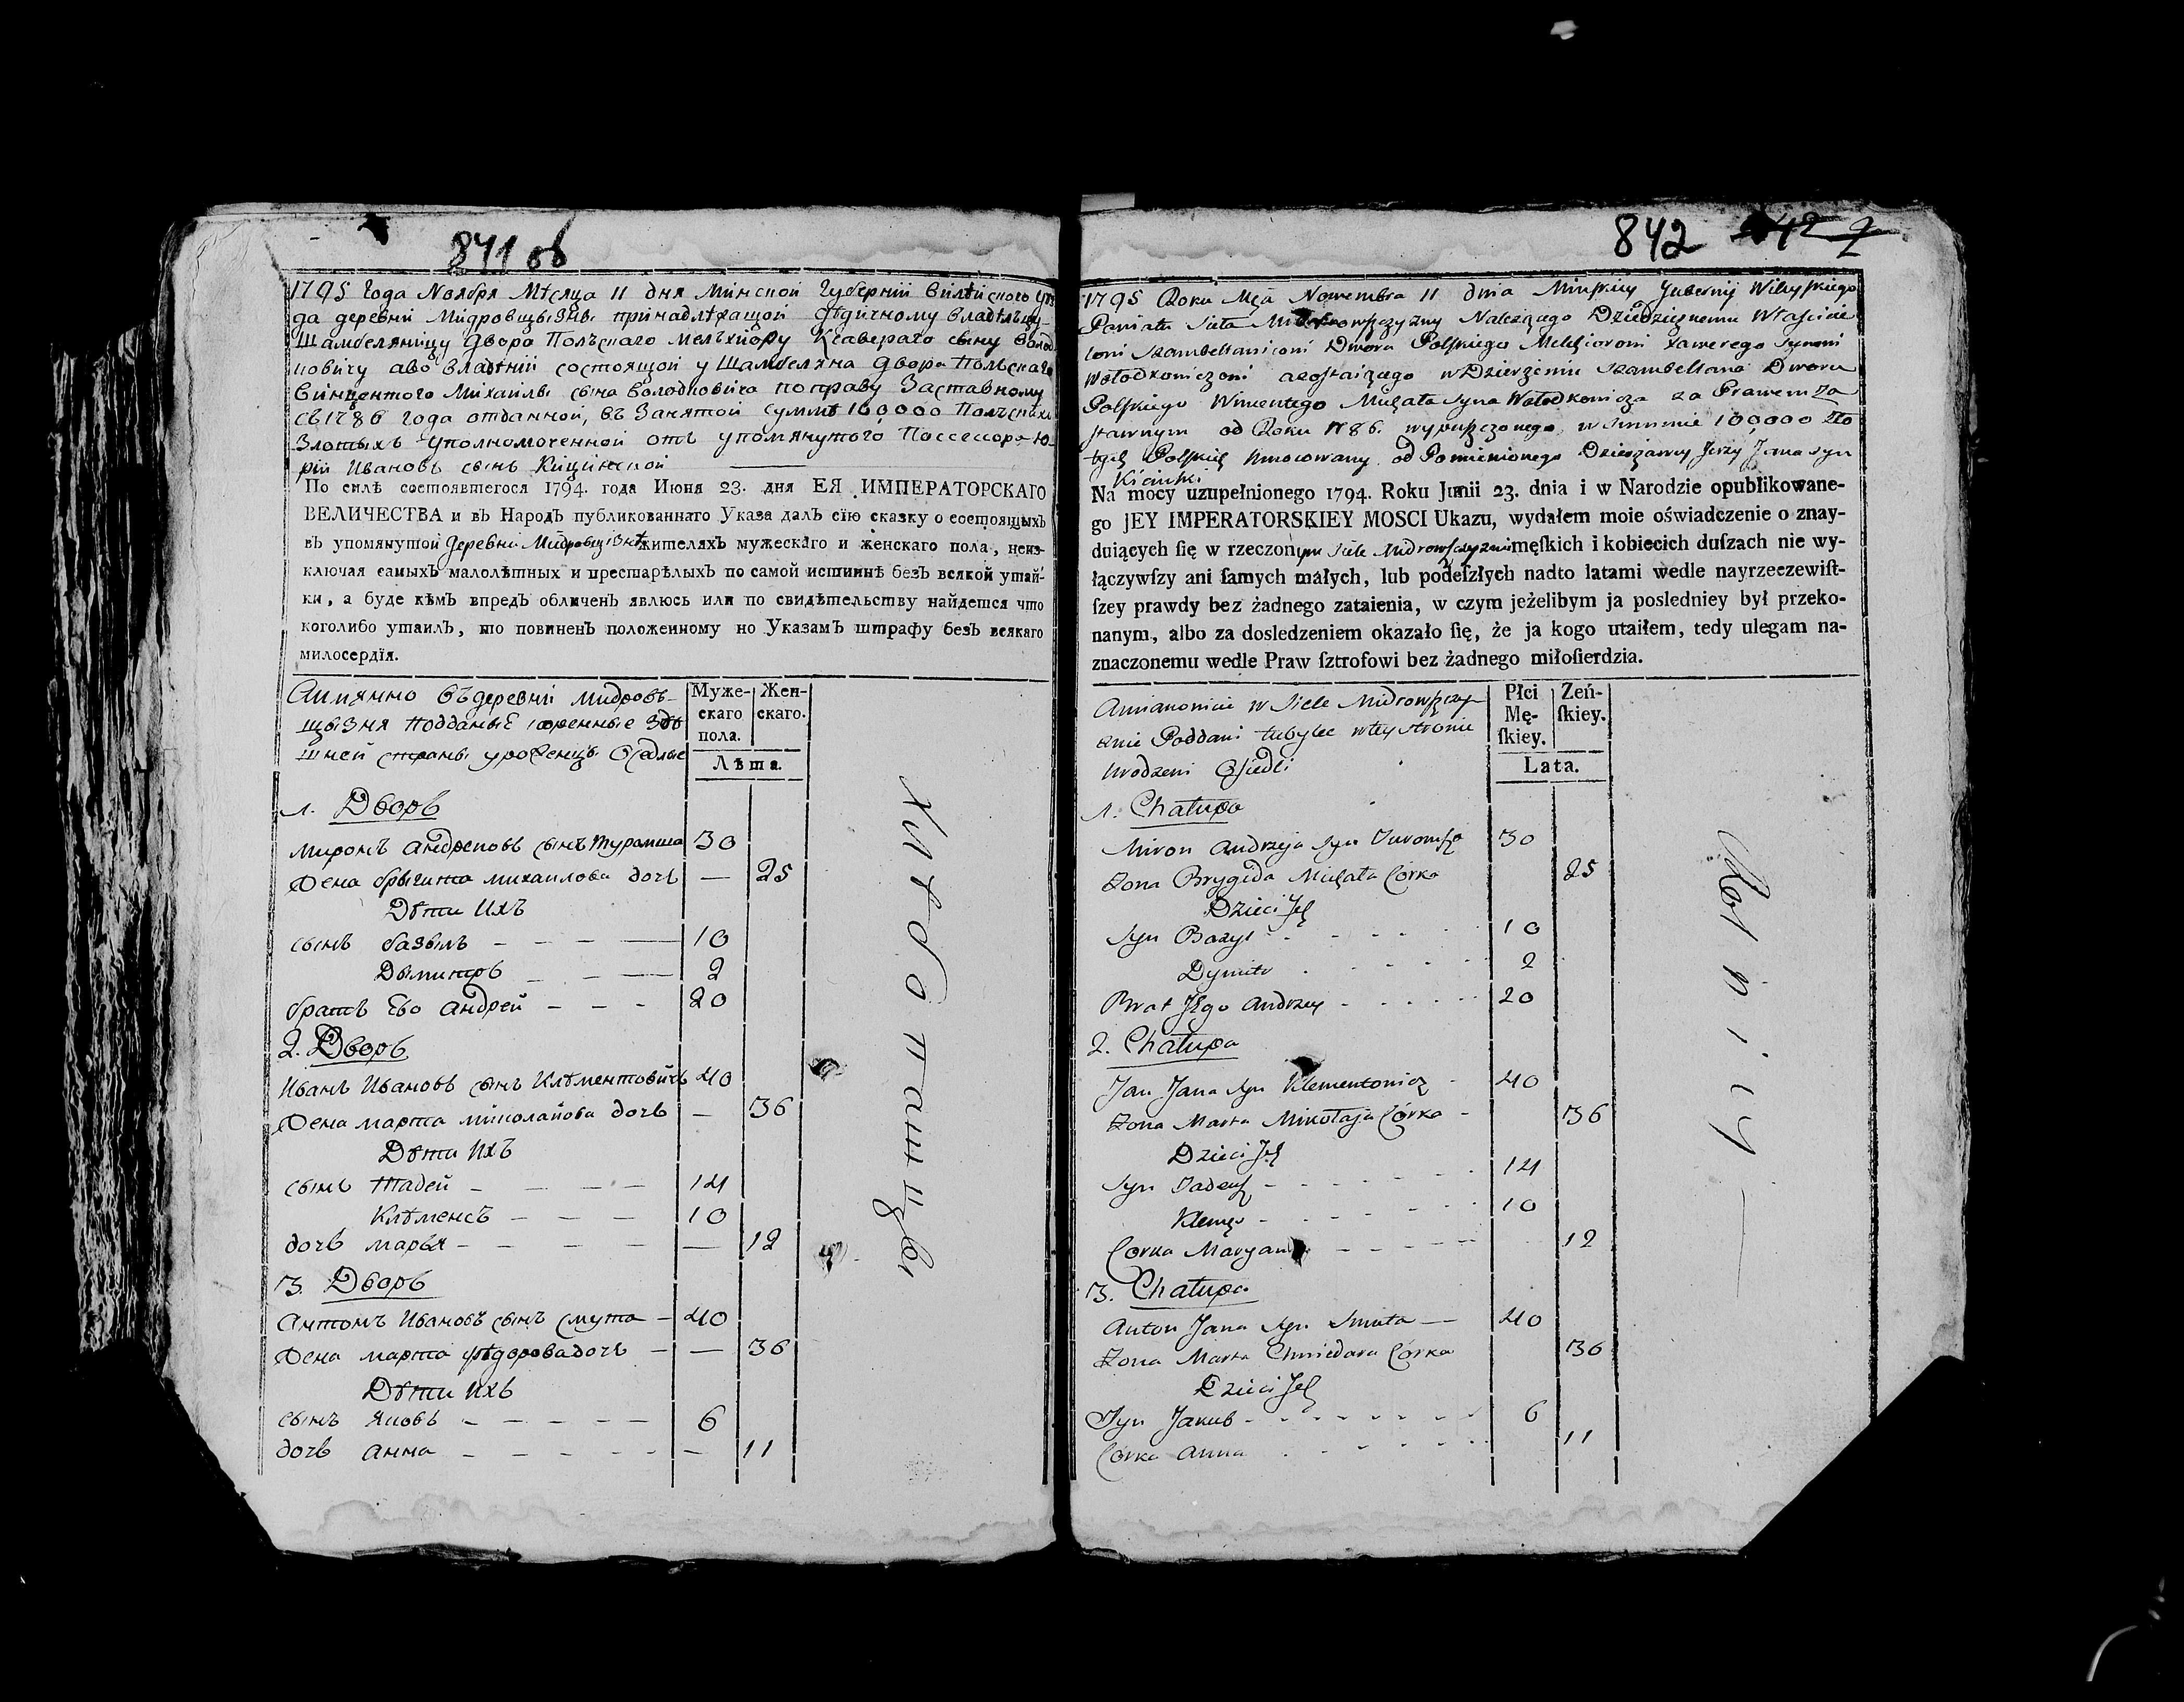 841 об
1795 Года Ноября Мѣсяца 11 дня Минской Губерніи Вилѣйского уѣз
да деревни Мидровщызны принадлѣжащой Дѣдичному владѣльцу
Шамбеляницу двора Польскаго Мельхиору Ксаверого сыну Волод
ковичу аво владѣнии состоящой у Шамбеляна двора Польскаго
Винцентого Михаила сына Володковича по праву Заставному
съ 1786 года отданной, въ Занятой суммѣ 100000 Польскихъ
Злотыхъ Уполномоченной отъ упомянутого Поссессора Ю-
рій Ивановъ сынъ Кицинской
По силѣ состоявшегося 1794. года Июня 23. дня ЕЯ ИМПЕРАТОРСКАГО
ВЕЛИЧЕСТВА и въ Народъ публикованнаго Указа далъ сїю сказку о состоящыхъ
въ упомянутой деревни Мидровщизнѣ жителяхъ мужескаго и женскаго пола, неиз-
ключая самыхъ малолѣтных и престарѣлыхъ по самой истиннѣ безъ всякой утай-
ки, а буде кѣмъ впредъ обличенъ явлюсь или по свидѣтельству найдется что
коголибо утаилъ, то повиненъ положенному по Указамъ штрафу безъ всякаго
милосердїя.
Аимянно въ деревни мидров-
щызня подданые коренные здѣ
шней страны уроженцы Оседлые
Муже-
скаго
пола.
Жен-
скаго.
Лѣта.
1. Дворъ
миронъ андреповъ сынъ турамша 30
Жена брыгита михаилова дочь — 25
Дѣти ихъ
сынъ базыль 10
Дымитръ 2
братъ Ево андрей 20
2. Дворъ
Иванъ Ивановъ сынъ Клѣментовичь 40
Жена марта миколаиова дочь — 36
Дѣти ихъ
сынъ тадей 14
Клѣменсъ 10
дочь марья — 12
3. Дворъ
Антонъ Ивановъ сынъ смута 40
Жена марта фѣдорова дочь — 36
Дѣти ихъ
сынъ яковъ 6
дочь анна — 11
Хлѣбопашцы
842
1795 Roku Mca Nowembra 11 dnia Minskiey Gubernij Wileyskiego
Powiatu Sieła Midrowszczyzny Należącego Dziedzicznemu Właścicie
lowi Szambellanicowi Dworu Polskiego Melchiorowi Xawerego Synowi
Wołodkowiczowi a zostaiącego w Dzierżeniu Szambellana Dworu
Polskiego Wincentego Michała Syna Wołodkowicza za Prawem Za
stawnym od Roku 1786. wypuszczonego w Summie 100000 Zło
tych Polskich Umocowany od Pomienionego Dzierżawcy Jerzy Jana syn
Kicinski
Na mocy uzupełnionego 1794. Roku Junii 23. dnia i w Narodzie opublikowane-
go JEY IMPERATORSKIEY MOSCI Ukazu, wydałem moie oświadczenie o znay-
duiących ſię w rzeczonym Siele Midrowszczyznie męſkich i kobiecich duſzach nie wy-
łączywſzy ani ſamych małych, lub podeſzłych nadto latami wedle nayrzeczewiſt-
ſzey prawdy bez żadnego zataienia, w czym jeżelibym ja posledniey był przeko-
nanym, albo za dosledzeniem okazało ſię, że ja kogo utaiłem, tedy ulegam na-
znaczonemu wedle Praw ſztrofowi bez żadnego miłoſierdzia.
Amianowicie w Siele Midrowszczy
znie Poddani tubylce w tey stronie
Urodzeni Osiedli
Płci
Mę-
ſkiey.
Zeń-
ſkiey.
Lata.
1. Chałupa
Miron Andrzeja Syn Turomsza 30
Zona Brygida Michała Córka 25
Dzieci Jch
Syn Bazyl 10
Dymitr 2
Brat Jego Andrzey 20
2. Chałupa
Jan Jana Syn Klementowicz 40
Zona Marta Mikołaja Córka 36
Dzieci Jch
Syn Tadeusz 14
Klemens 10
Corka Maryana 12
3. Chałupa
Anton Jana Syn Smuta 40
Zona Marta Chwiedora Córka 36
Dzieci Jch
Syn Jakub 6
Córka Anna 11
Rolnicy